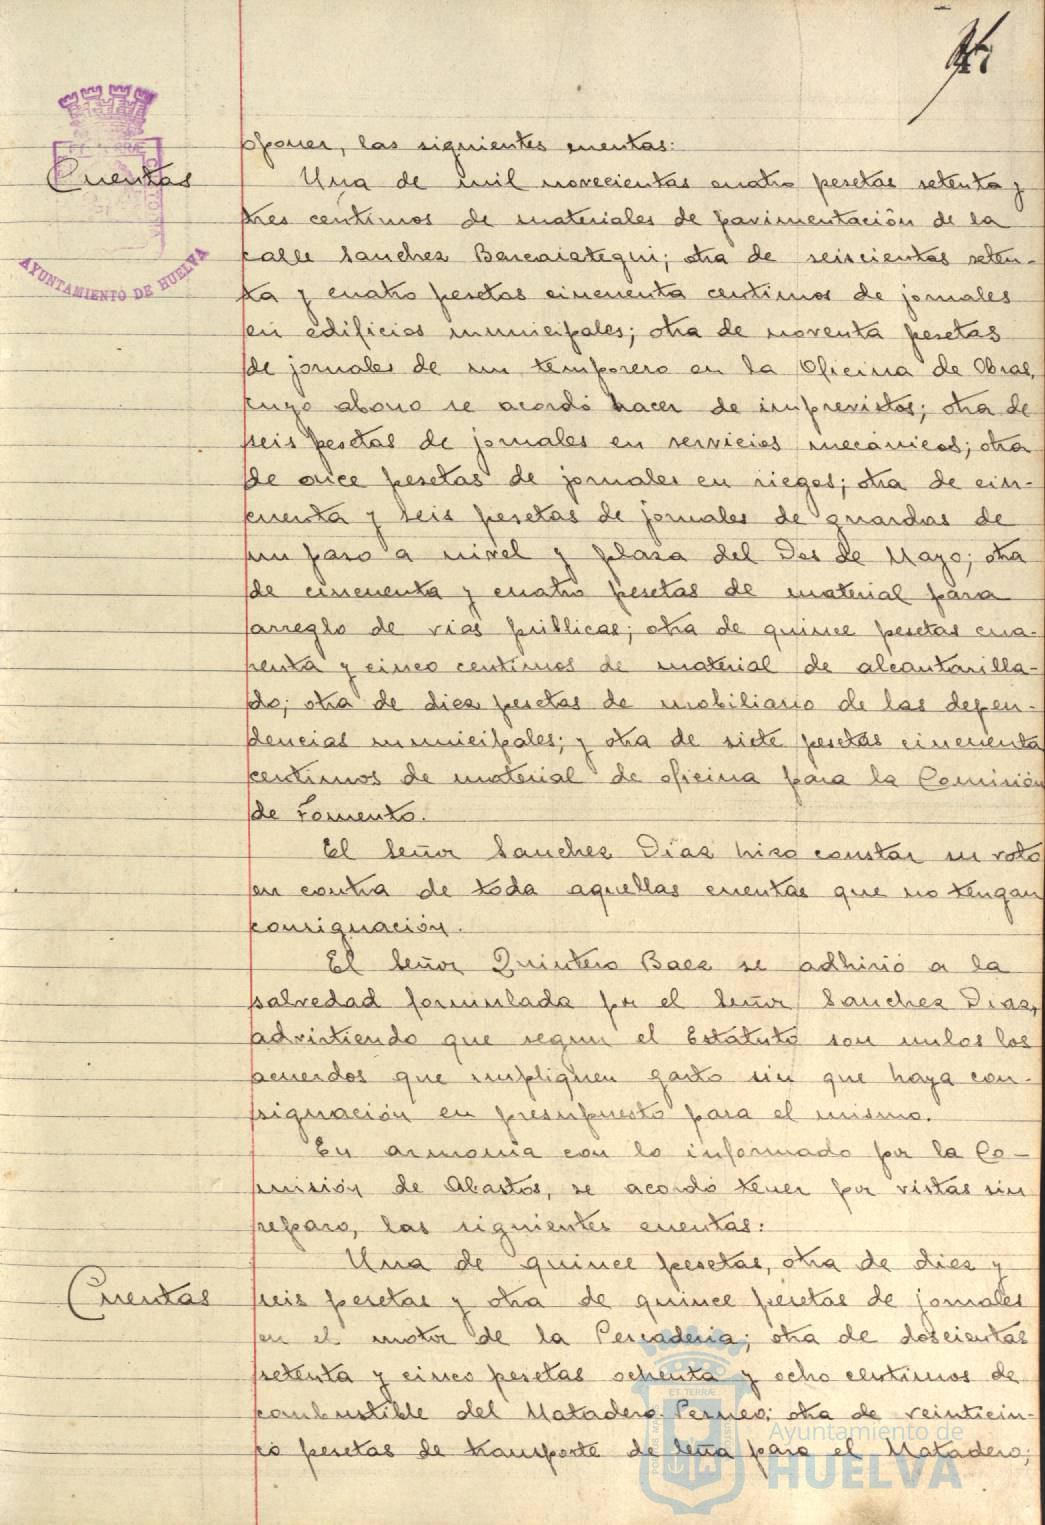 47
oponer, las siguientes cuentas:
Cuentas
Una de mil novecientas cuatro pesetas setenta y
tres centimos de materiales de pavimentación de la
calle Sanchez Barcaiztegui; otra de seiscientas seten-
ta y cuatro pesetas cincuenta centimos de jornales
en edificios municipales; otra de noventa pesetas
de jornales de un temporero en la Oficina de Obras,
cuyo abono se acordó hacer de imprevistos; otra de
seis pesetas de jornales en servicios mecánicos; otra
de once pesetas de jornales en riegos; otra de cin-
cuenta y seis pesetas de jornales de guardas de
un paso a nivel y plaza del Dos de Mayo; otra
de cincuenta y cuatro pesetas de material para
arreglo de vias públicas; otra de quince pesetas cua-
renta y cinco centimos de material de alcantarilla-
do; otra de diez pesetas de mobiliario de las depen-
dencias municipales; y otra de siete pesetas cincuenta
centimos de material de oficina para la Comisión
de Fomento.
El Señor Sanchez Diaz hizo constar su voto
en contra de toda aquellas cuentas que no tengan
consignación.
El Señor Quintero Baez se adhirió a la
salvedad formulada por el Señor Sanchez Diaz,
advirtiendo que segun el Estatuto son nulos los
acuerdos que impliquen gasto sin que haya con-
signación en presupuesto para el mismo.
En armonia con lo informado por la Co-
misión de Abastos, se acordó tener por vistas sin
reparo, las siguientes cuentas:
Cuentas
Una de quince pesetas, otra de diez y
seis pesetas y otra de quince pesetas de jornales
en el motor de la Pescaderia; otra de doscientas
setenta y cinco pesetas ochenta y ocho centimos de
combustible del Matadero Perneo; otra de veinticin-
co pesetas de transporte de leña para el Matadero;
AYUNTAMIENTO DE HUELVA
Ayuntamiento de
HUELVA